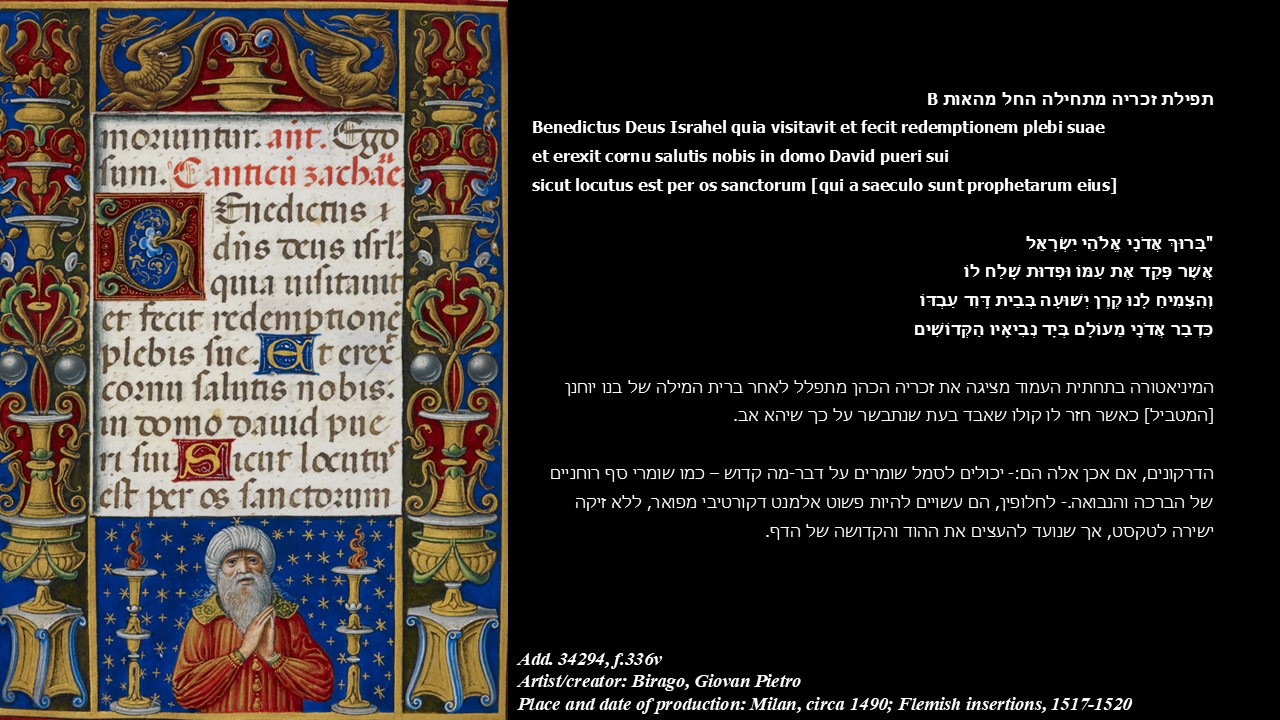 moriuntur. añt. Ego
sum. Canticũ zachaẽ.
Enedictus
dñs deus isrl.
quia uisitauit
et fecit redemptionẽ
plebis sue. Et erex
cornu salutis nobis:
in domo dauid pue
ri sui Sicut locutus
est per os sanctorum
תפילת זכריה מתחילה החל מהאות B
Benedictus Deus Israhel quia visitavit et fecit redemptionem plebi suae
et erexit cornu salutis nobis in domo David pueri sui
sicut locutus est per os sanctorum [qui a saeculo sunt prophetarum eius]
"בָּרוּךְ אֲדֹנָי אֱלֹהֵי יִשְׂרָאֵל
אֲשֶׁר פָּקַד אֶת עַמּוֹ וּפְדוּת שָׁלַח לוֹ
וְהִצְמִיחַ לָנוּ קֶרֶן יְשׁוּעָה בְּבֵית דָּוִד עַבְדּוֹ
כִּדְבַר אֲדֹנָי מֵעוֹלָם בְּיַד נְבִיאָיו הַקְּדוֹשִׁים
המיניאטורה בתחתית העמוד מציגה את זכריה הכהן מתפלל לאחר ברית המילה של בנו יוחנן
[המטביל] כאשר חזר לו קולו שאבד בעת שנתבשר על כך שיהא אב.
הדרקונים, אם אכן אלה הם:- יכולים לסמל שומרים על דבר-מה קדוש – כמו שומרי סף רוחניים
של הברכה והנבואה.- לחלופין, הם עשויים להיות פשוט אלמנט דקורטיבי מפואר, ללא זיקה
ישירה לטקסט, אך שנועד להעצים את ההוד והקדושה של הדף.
Add. 34294, f.336v
Artist/creator: Birago, Giovan Pietro
Place and date of production: Milan, circa 1490; Flemish insertions, 1517-1520